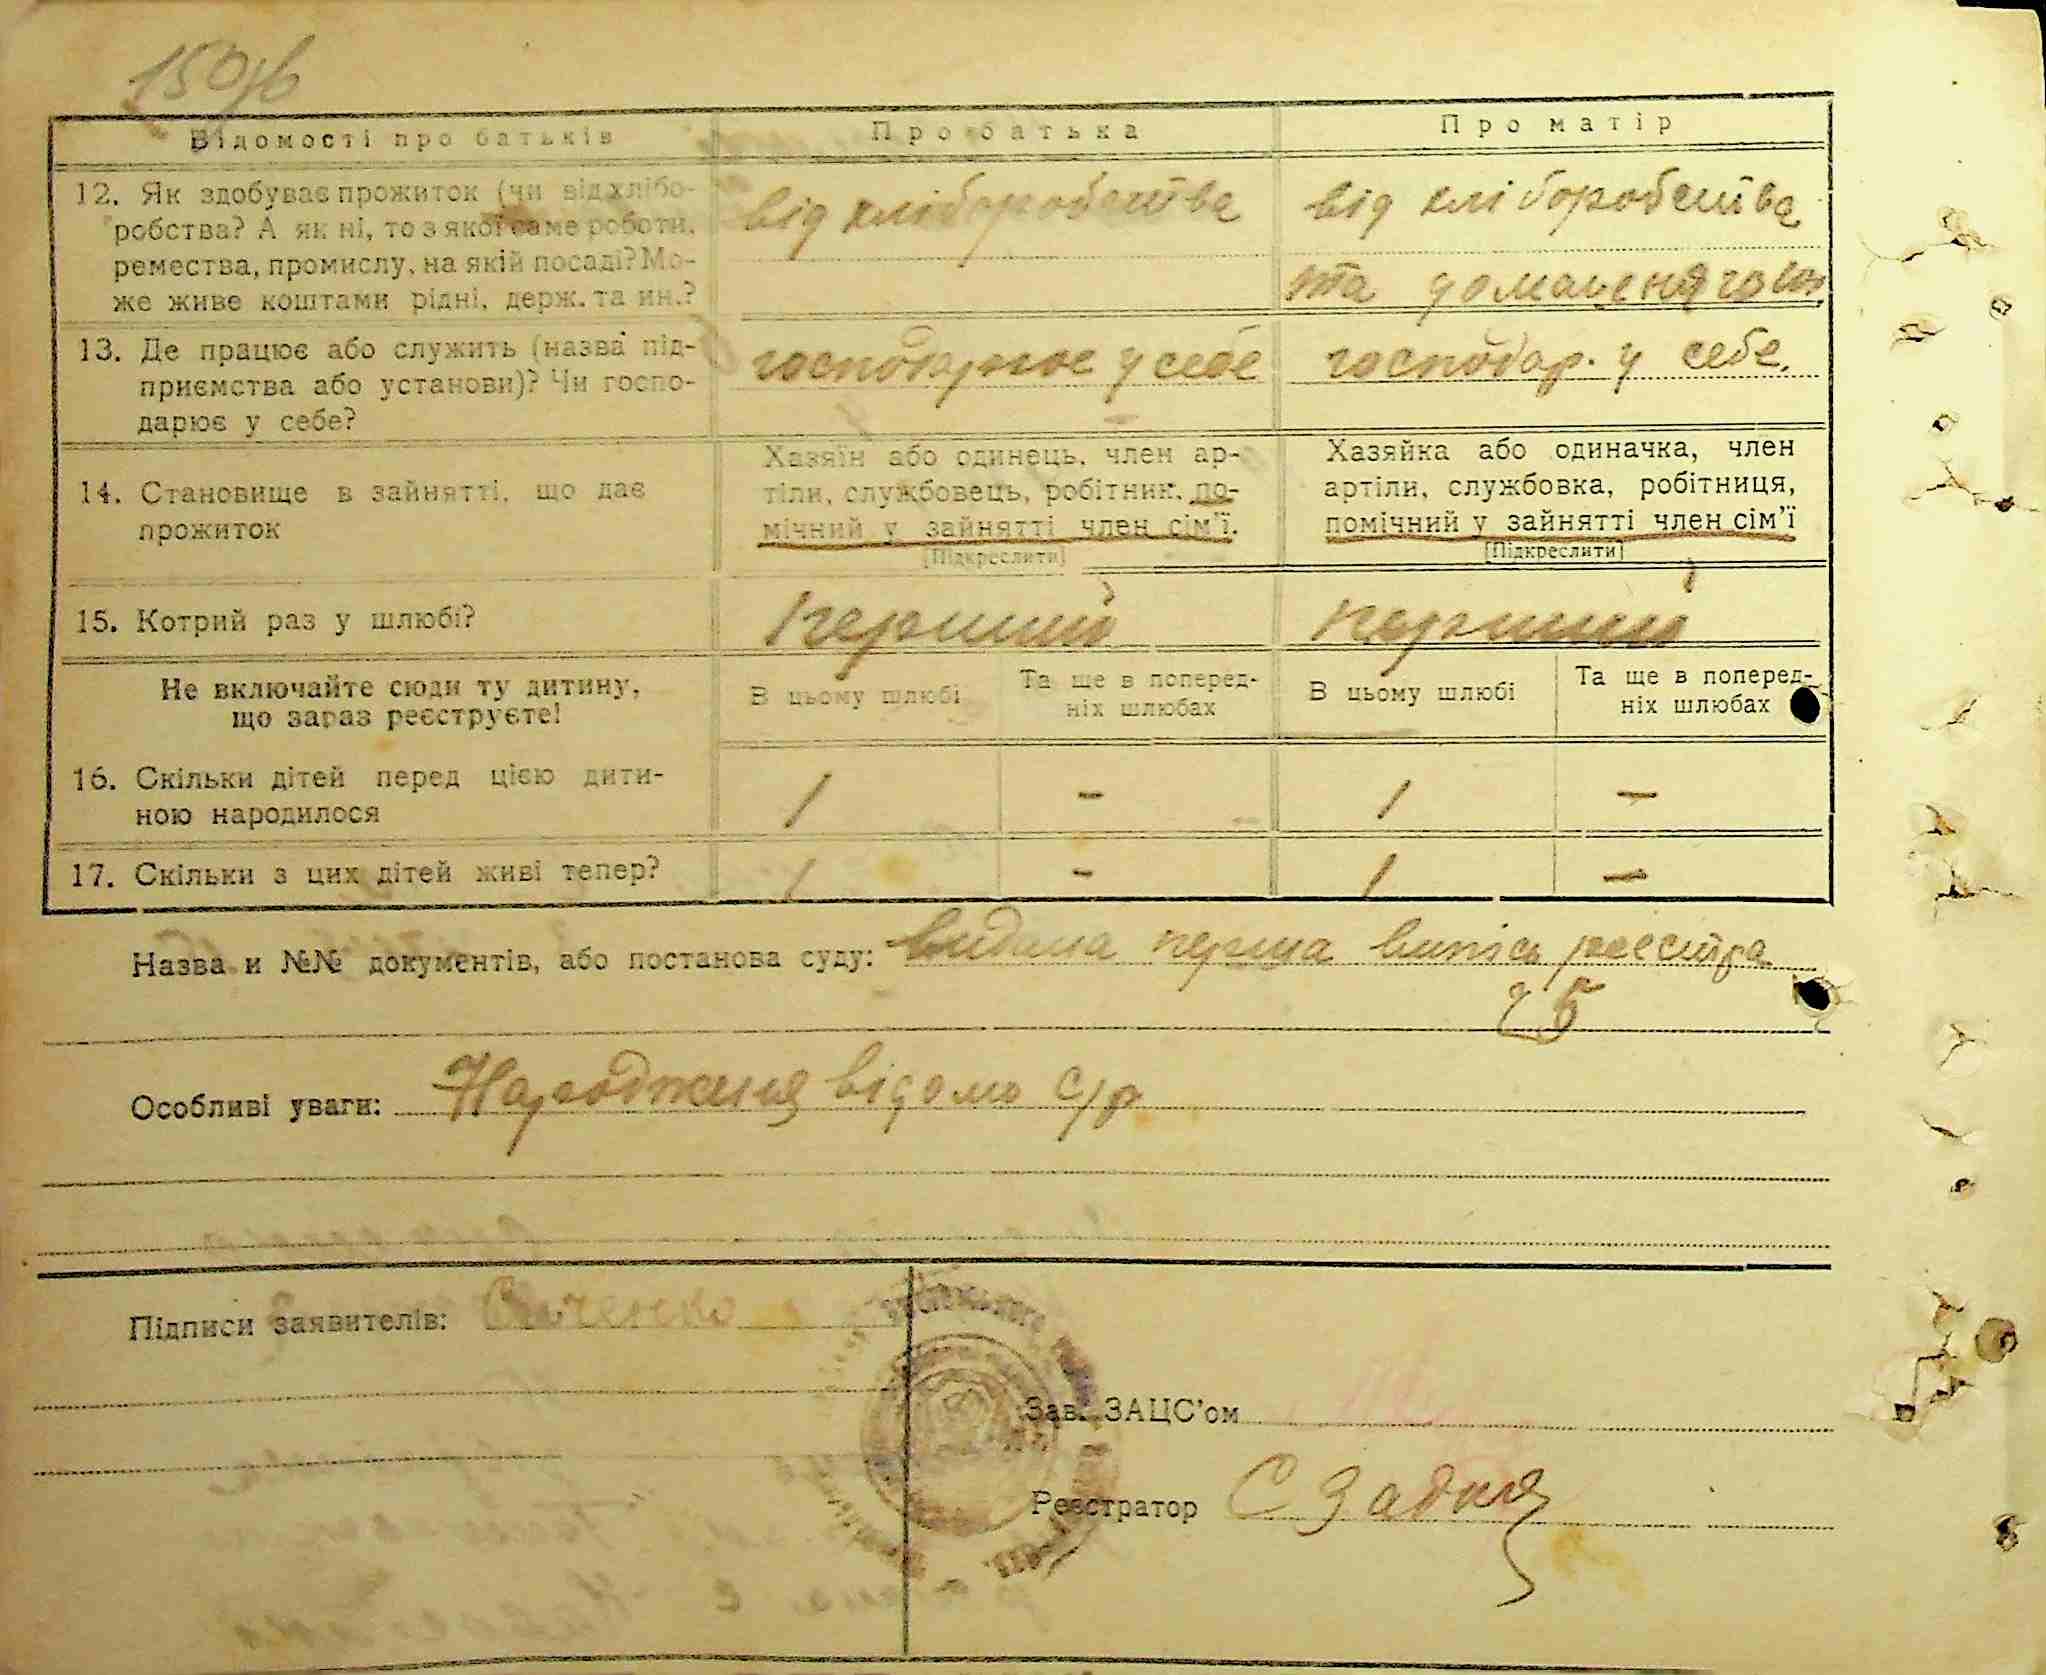 150зв
Відомості про батьків
Про батька
Про матір
12. Як здобуває прожиток (чи від хлібо-
робства? А як ні, то з якої саме роботи,
ремества, промислу, на якій посаді? Мо-
же живе коштами рідні, держ. та ин.?
від хліборобства
від хліборобства
та домашеня
13. Де працює або служить (назва під-
приємства або установи)? Чи госпо-
дарює у себе?
господарює у себе
господар. у себе.
14. Становище в зайнятті, що дає
прожиток
Хазяїн або одинець, член ар-
тіли, службовець, робітник, по-
мічний у зайнятті член сім'ї.
[Підкреслити]
Хазяйка або одиначка, член
артіли, службовка, робітниця,
помічний у зайнятті член сім'ї
[Підкреслити]
15. Котрий раз у шлюбі?
перший
перший
Не включайте сюди ту дитину,
що зараз реєструєте!
В цьому шлюбі
Та ще в поперед-
ніх шлюбах
В цьому шлюбі
Та ще в поперед-
ніх шлюбах
16. Скільки дітей перед цією дити-
ною народилося
1 - 1 -
17. Скільки з цих дітей живі тепер?
1 - 1 -
Назва и №№ документів, або постанова суду: видана перша випісь реєстра
25
Особливі уваги: Народженя відомо с/р
Підписи заявителів:
Зав. ЗАЦС'ом
Реєстратор С Задня